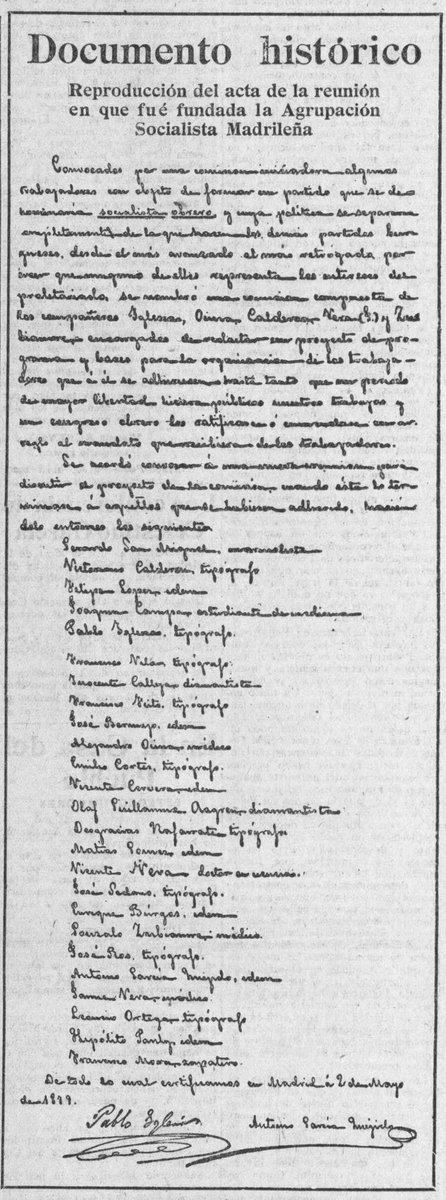 Documento histórico
Reproducción del acta de la reunión
en que fué fundada la Agrupación
Socialista Madrileña
Convocados por una comision iniciadora algunos
trabajadores con objeto de formar un partido que se de-
nominaria socialista obrero y cuya politica se separara
completamente de la que hacen los demás partidos bur-
gueses, desde el más avanzado al más retrogado, por
creer que ninguno de ellos representa los intereses del
proletariado, se nombró una comision compuesta de
los compañeros Iglesias, Ocina, Calderon, Vera (J.) y Zu-
biaurre, encargados de redactar un proyecto de pro-
grama y bases para la organizacion de los trabaja-
dores que á él se adhiriesen hasta tanto que un periodo
de mayor libertad hiciera públicos nuestros trabajos y
un congreso obrero los ratificase ó enmendase con ar-
reglo al mandato que recibiera de los trabajadores.
Se acordó convocar á una nueva reunion para
discutir el proyecto de la comision, cuando ésta lo ter-
minase á aquellos que se hubiesen adherido, hacien-
dolo entonces los siguientes
Gerardo San Miguel, marmolista
Victoriano Calderon, tipógrafo
Felipe Lopez, idem
Joaquin, estudiante de medicina
Pablo Iglesias, tipógrafo.
Francisco Vilar, tipógrafo.
Inocente Calleja, diamantista
Francisco, tipógrafo
José Bermejo, idem
Alejandro Ocina, médico
Emilio Cortés, tipógrafo.
Vicente Cervera, idem
Olaf Guillaume Aagren, diamantista
Deogracias Nafarrate, tipógrafo
Matias Gomez, idem
Vicente Vera doctor en ciencias.
José Sedano, tipógrafo.
Enrique Búrgos, idem
Gonzalo Zubiaurre, médico.
José Ros, tipógrafo.
Antonio Garcia Quejido, idem
Jaime Vera, médico.
Leoncio Ortega, tipógrafo
Hipólito Pauly, idem
Francisco Mora, zapatero.
De todo lo cual certificamos en Madrid á 2 de Mayo
de 1879.
Pablo Iglesias Antonio Garcia Quejido